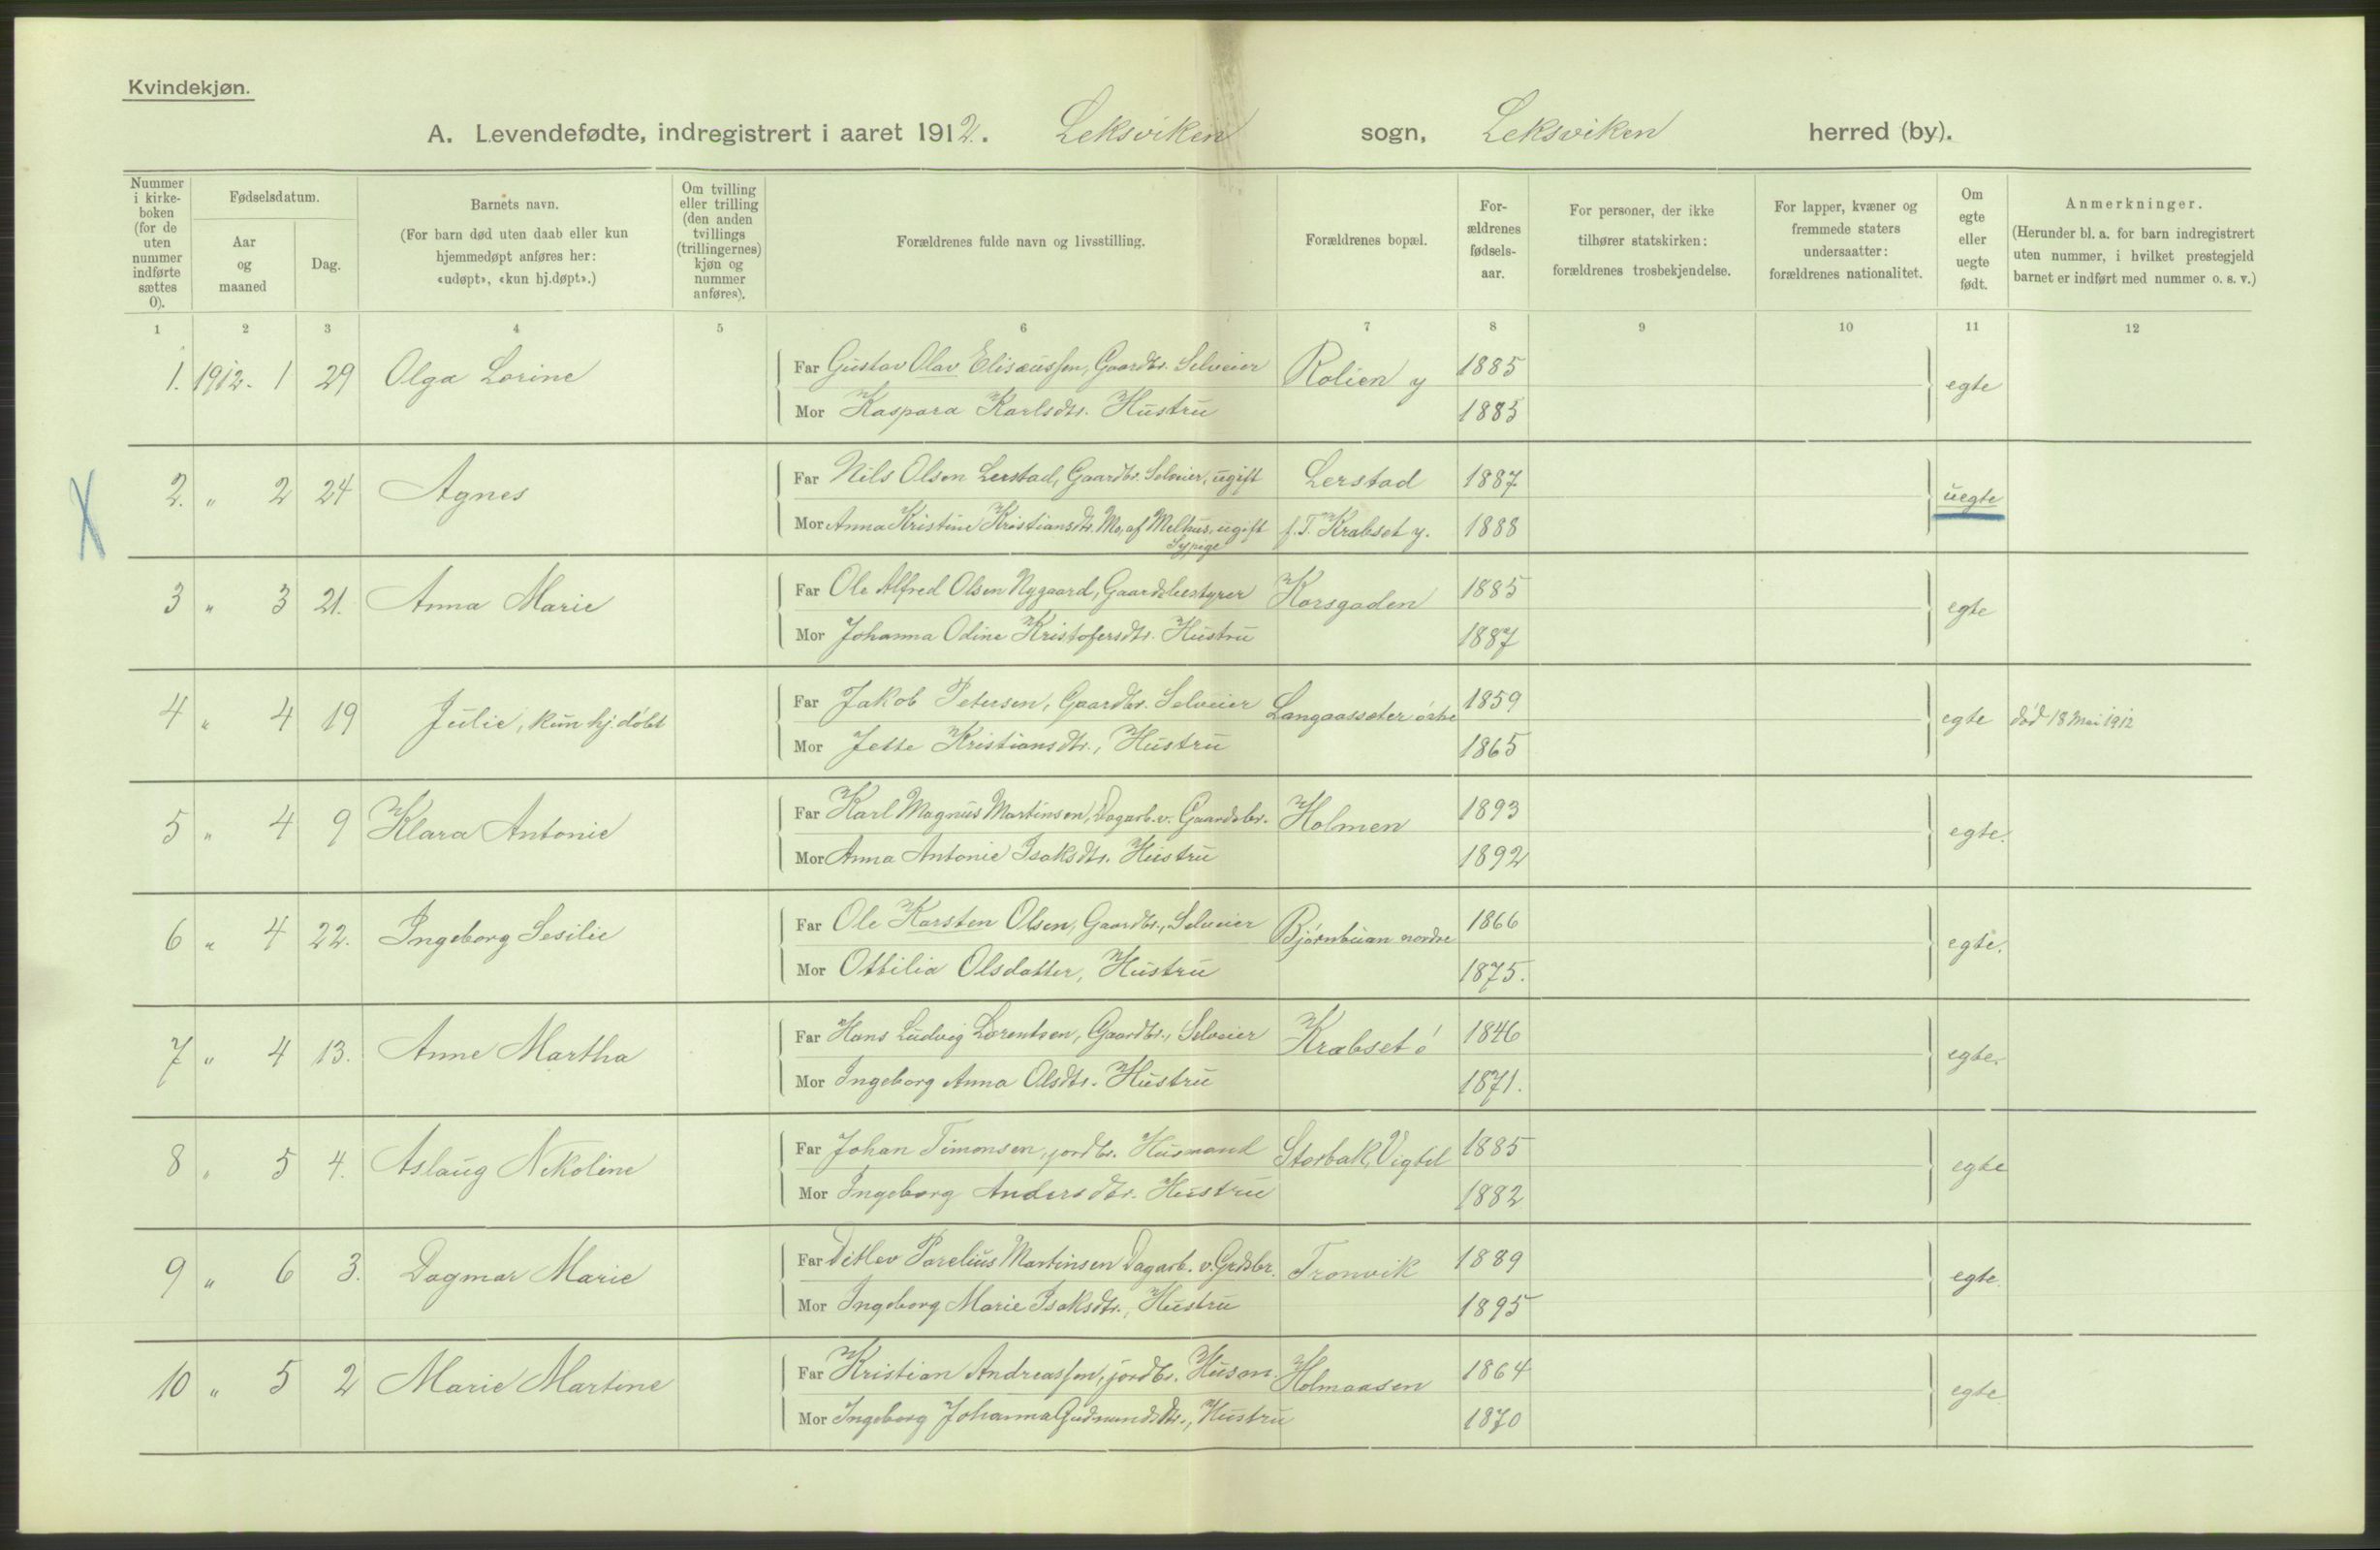 Kvindekjøn.
A. Levendefødte, indregistrert i aaret 1912. Leksviken sogn, Leksviken herred (by).
Nummer i kirke-boken (for de uten nummer indførte sættes 0).
Fødselsdatum.
Aar og maaned
Dag.
Barnets navn.
(For barn død uten daab eller kun hjemmedøpt anføres her: «udøpt», «kun hj.døpt».)
Om tvilling eller trilling (den anden tvillings (trillingernes) kjøn og nummer anføres).
Forældrenes fulde navn og livsstilling.
Forældrenes bopæl.
For-ældrenes fødsels-aar.
For personer, der ikke tilhører statskirken: forældrenes trosbekjendelse.
For lapper, kvæner og fremmede staters undersaatter: forældrenes nationalitet.
Om egte eller uegte født.
Anmerkninger.
(Herunder bl. a. for barn indregistrert uten nummer, i hvilket prestegjeld barnet er indført med nummer o. s. v.)
1 2 3 4 5 6 7 8 9 10 11 12
1. 1912. 1 29 Olga Lorine Far Gustav Olav Elisæussen, Gaardbr. Selveier Rolien y 1885 egte
Mor Kaspara Karlsdtr. Hustru 1885
X 2. " 2 24 Agnes Far Nils Olsen Lerstad, Gaardbr. Selveier, ugift Lerstad 1887 uegte
Mor Anna Kristine Kristiansdtr. Mo, af Melhus, ugift f.T. Krabset y. 1888
Sypige
3 " 3 21. Anna Marie Far Ole Alfred Olsen Nygaard, Gaardsbestyrer Korsgaden 1885 egte
Mor Johanna Odine Kristofersdtr. Hustru 1887
4 " 4 19 Julie, kun hj. døbt Far Jakob Petersen, Gaardbr. Selveier Langaassæter østre 1859 egte død 18 Mai 1912
Mor Jette Kristiansdtr., Hustru 1865
5 " 4 9 Klara Antonie Far Karl Magnus Martinsen, Dagarb. v. Gaardsbr. Holmen 1893 egte.
Mor Anna Antonie Isaksdtr. Hustru 1892
6 " 4 22. Ingeborg Sesilie Far Ole Karsten Olsen, Gaardbr., Selveier Bjørnbuan nordre 1866 egte.
Mor Ottilia Olsdatter, Hustru 1875.
7 " 4 13. Anne Martha Far Hans Ludvig Lorentsen, Gaardbr., Selveier Krabset ø 1846 egte.
Mor Ingeborg Anna Olsdtr. Hustru 1871.
8 " 5 4. Aslaug Nikoline Far Johan Timonsen, jordbr. Husmand Storbak, Vigtil 1885 egte
Mor Ingeborg Andersdtr. Hustru 1882
9 " 6 3. Dagmar Marie Far Ditlev Parelius Martinsen Dagarb. v. Grdsbr. Tronvik 1889 egte.
Mor Ingeborg Marie Isaksdtr., Hustru 1895
10 " 5 2 Marie Martine Far Kristian Andreassen, jordbr. Husm. Holmaasen 1864 egte
Mor Ingeborg Johanna Gudmundsdtr., Hustru 1870